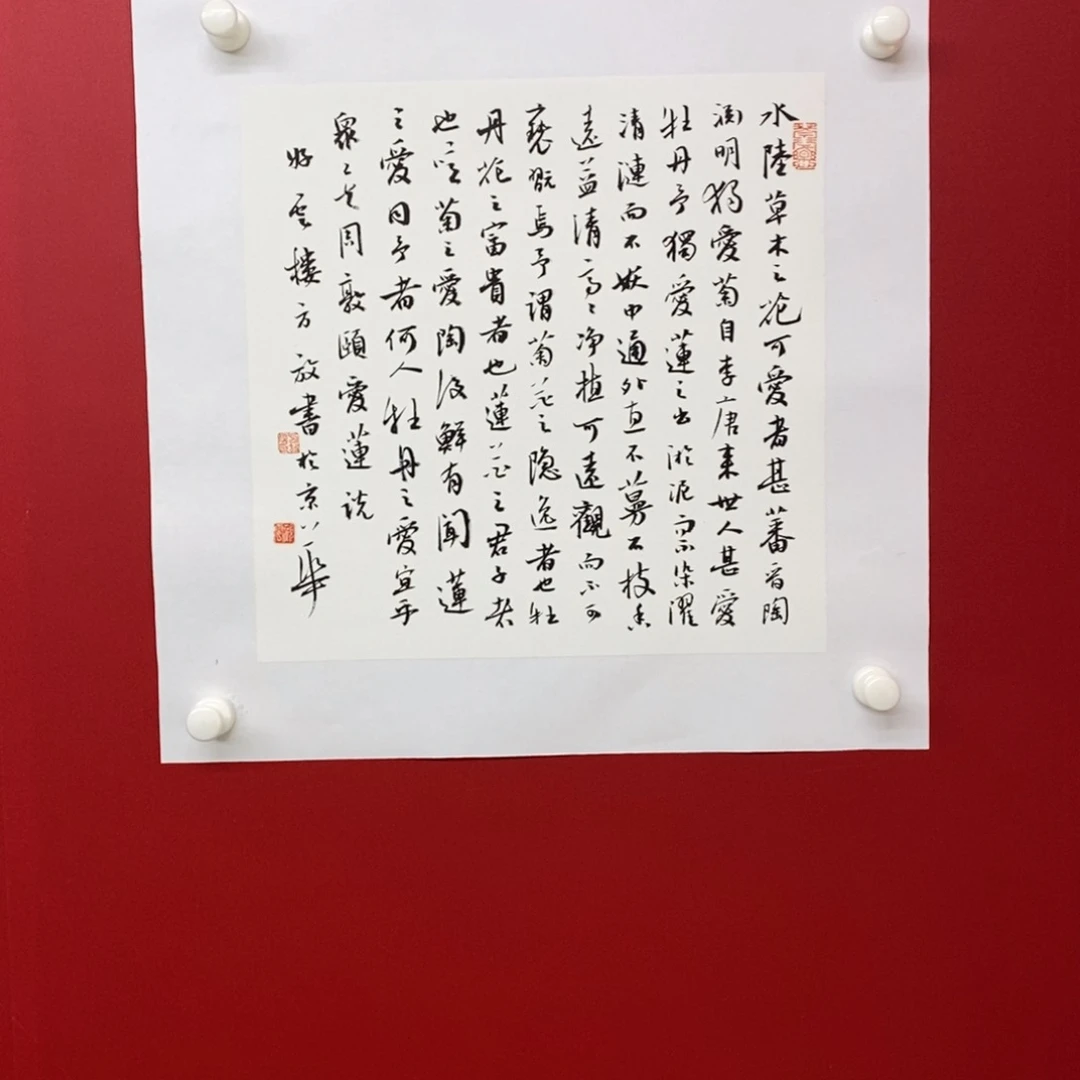 水陸草木之花可愛者甚蕃晋陶
渊明独愛菊自李唐来世人甚愛
牡丹予獨愛蓮之出淤泥而不染濯
清漣而不妖中通外直不蔓不枝香
遠益清亭〻净植可遠觀而不可
褻翫焉予謂菊花之隐逸者也牡
丹花之富貴者也蓮花之君子者
也噫菊之愛陶后鮮有聞蓮
之愛同予者何人牡丹之愛宜乎
衆矣周敦頤愛蓮説
樓方放書於京華